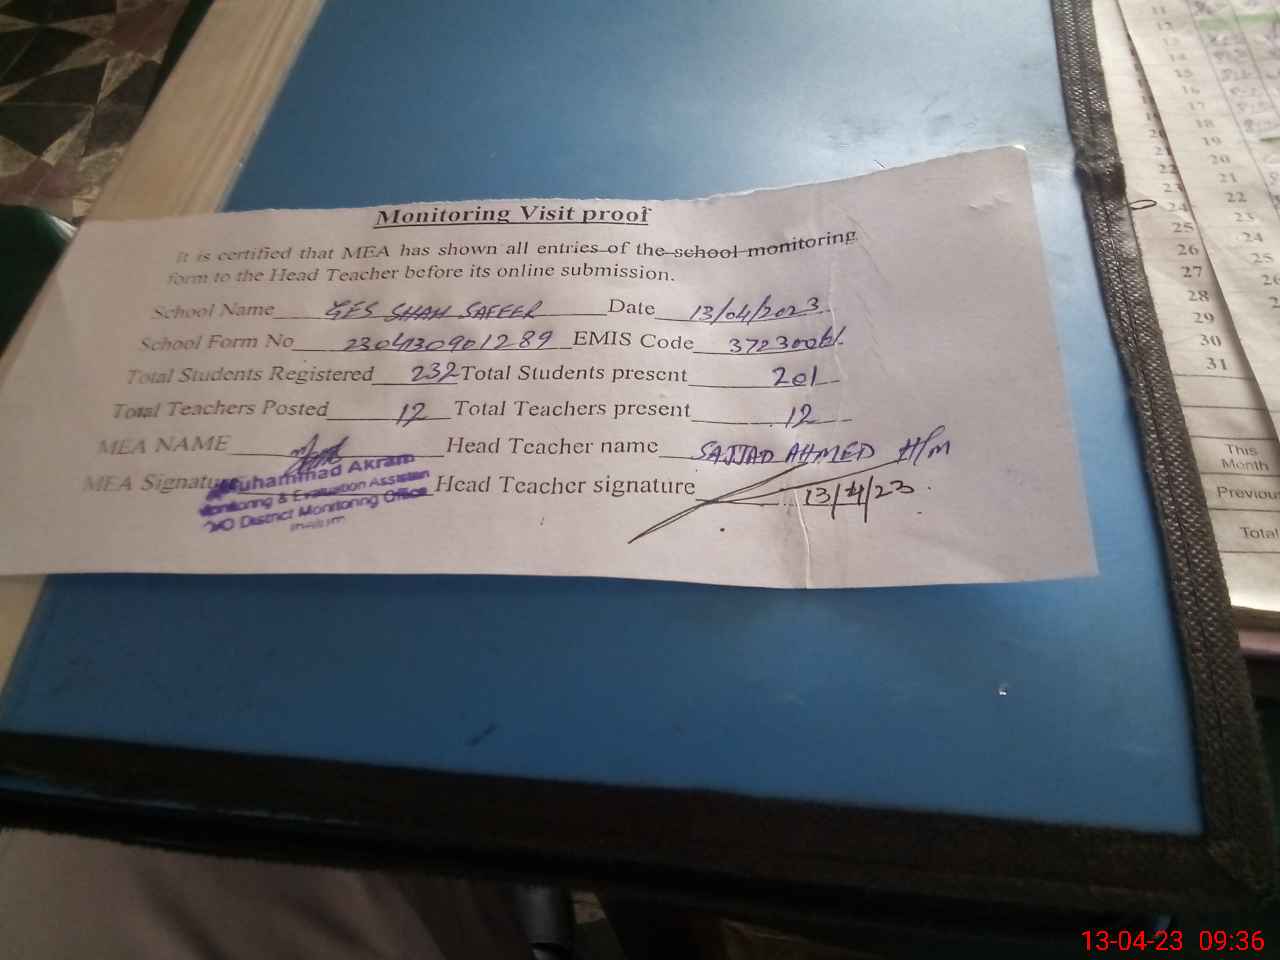 Monitoring Visit proof
It is certified that MEA has shown all entries of the school monitoring
form to the Head Teacher before its online submission.
School Name GES SHAH SAFEER Date 13/04/2023
School Form No 2304130901289 EMIS Code
Total Students Registered 232 Total Students present 201
Total Teachers Posted 12 Total Teachers present 12
MEA NAME Head Teacher name SAJJAD AHMED H/M
MEA Signature Head Teacher signature 13/4/23
Muhammad Akram
Monitoring & Evaluation Assistan
District Monitoring Office
11
12
13
14
15
16
17
18
19
20
21
22
23
24
25
26
27
28
29
30
31
This
Month
Previou
Total
13-04-23 09:36